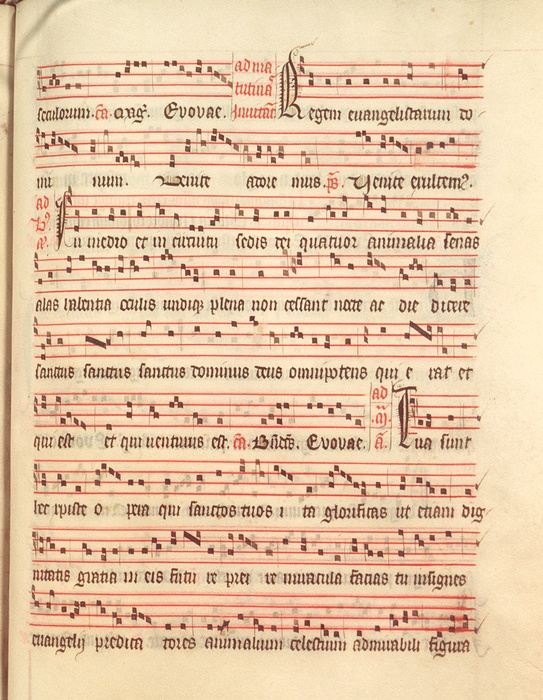 seculorum. ca. mag̃. Evovae. ad ma tutinã Invitat̃ Regem euangelistarum do
mi num. Venite adore mus. p̃s. Venite exultem9.
ad In medio et in circuitu sedis dei quatuor animalia senas
alas habentia oculis undiqȝ plena non cessant nocte ac die dicere
sanctus sanctus sanctus dominus deus omnipotens qui e rat et
qui est et qui uenturus est. ca. Bñdc̃s. Evovae. ad a. Tua sunt
hec xpiste o pera qui sanctos tuos i ta glorificas ut etiam dig
nitatis gratia in eis futu re prei re miracula facias tu insignes
euangelij predica tores animalium celestium admirabili figura